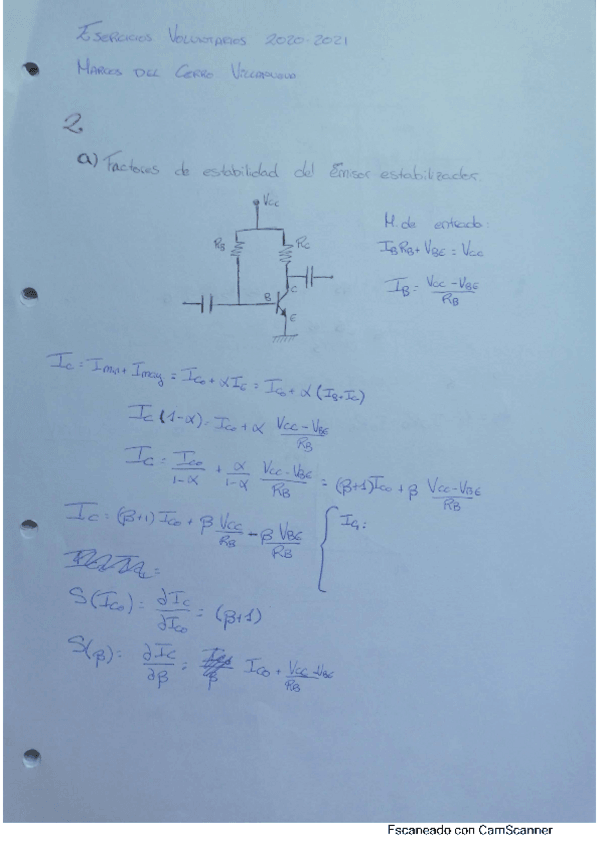 EJERCICIOS VOLUNTARIOS 2020-2021
MARCOS DEL CERRO
2.
a) Factores de estabilidad del Emisor estabilizador.
Vcc
RB
Rc
C
B
E
M. de entrada:
IB RB + VBE = Vcc
IB = (Vcc - VBE) / RB
Ic = Imin + Imay = Ico + αIE = Ico + α (IB + Ic)
Ic (1-α) = Ico + α (Vcc - VBE) / RB
Ic = Ico / (1-α) + α / (1-α) (Vcc - VBE) / RB = (β+1) Ico + β (Vcc - VBE) / RB
Ic = (β+1) Ico + β Vcc / RB - β VBE / RB { IC1 =
S(Ico) = ∂Ic / ∂Ico = (β+1)
S(β) = ∂Ic / ∂β = Ico + (Vcc - VBE) / RB
Escaneado con CamScanner